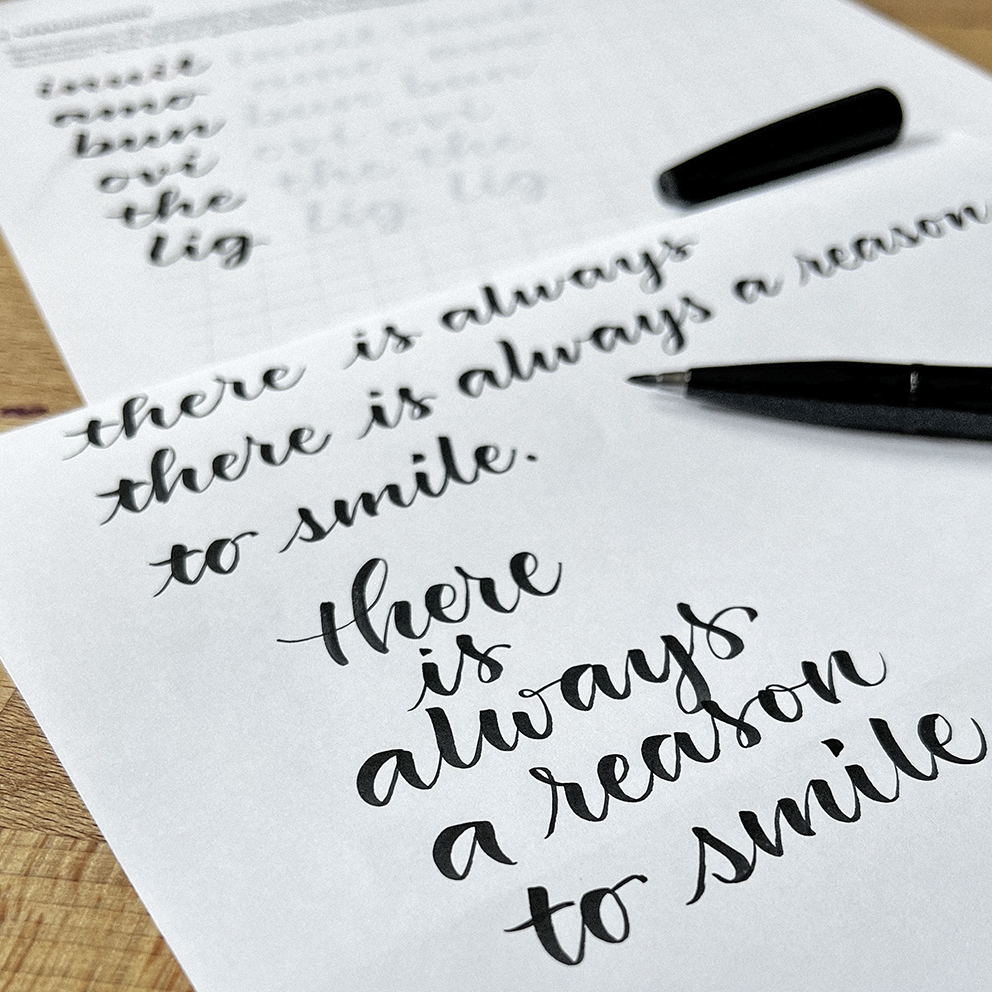 inuit inuit inuit
amo nume mume
bun bun bun
ovi ovi ovi
the the the
lig lig lig
there is always
there is always a reason
to smile.
there
is
always
a reason
to smile